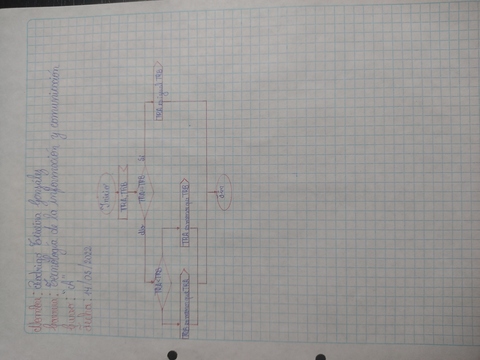 Nombre: Rodrigo Teixeira González
Carrera: Tecnología de la información y comunicación
Grupo: "A"
Fecha: 14/03/2022
Inicio
TRA, TRB
No TRA=TRB Si
TRA<TRB TRA es igual TRB
TRB es menor que TRA TRA es menor que TRB
Fin